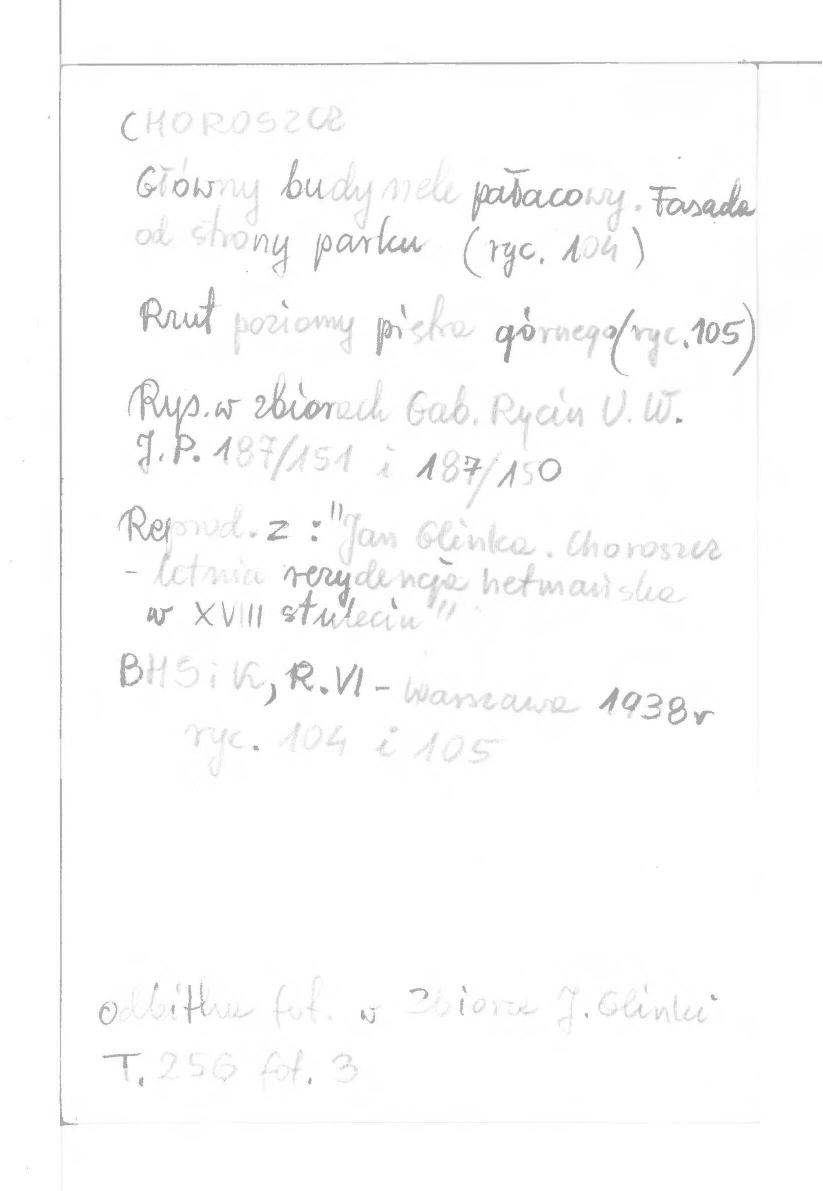 CHOROSZCZ
Główny budynek pałacowy. Fasada
od strony parku (ryc. 104)
Rzut poziomy piętra górnego (ryc. 105)
Rys. w zbiorach Gab. Rycin U. W.
J.P. 187/151 i 187/150
Reprod. z : "Jan Glinka. Choroszcz
- letnia rezydencja hetmańska
w XVIII stuleciu"
BHSiK, R.VI - Warszawa 1938r
ryc. 104 i 105
Odbitka fot. w Zbiorze J. Glinki
T. 256 fot. 3